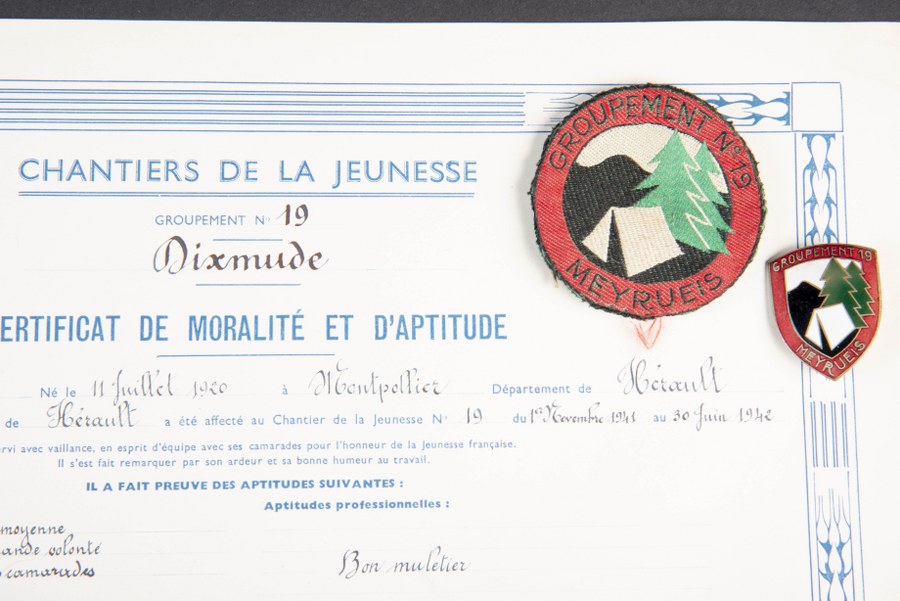 CHANTIERS DE LA JEUNESSE
GROUPEMENT No 19
Dixmude
ERTIFICAT DE MORALITÉ ET D'APTITUDE
Né le 11 Juillet 1920 à Montpellier Département de Hérault
de Hérault a été affecté au Chantier de la Jeunesse No 19 du 1er Novembre 1941 au 30 Juin 1942
rvi avec vaillance, en esprit d'équipe avec ses camarades pour l'honneur de la Jeunesse française.
Il s'est fait remarquer par son ardeur et sa bonne humeur au travail.
IL A FAIT PREUVE DES APTITUDES SUIVANTES :
Aptitudes professionnelles :
moyenne
ande volonté
camarades
Bon muletier
GROUPEMENT No 19
MEYRUEIS
GROUPEMENT 19
MEYRUEIS